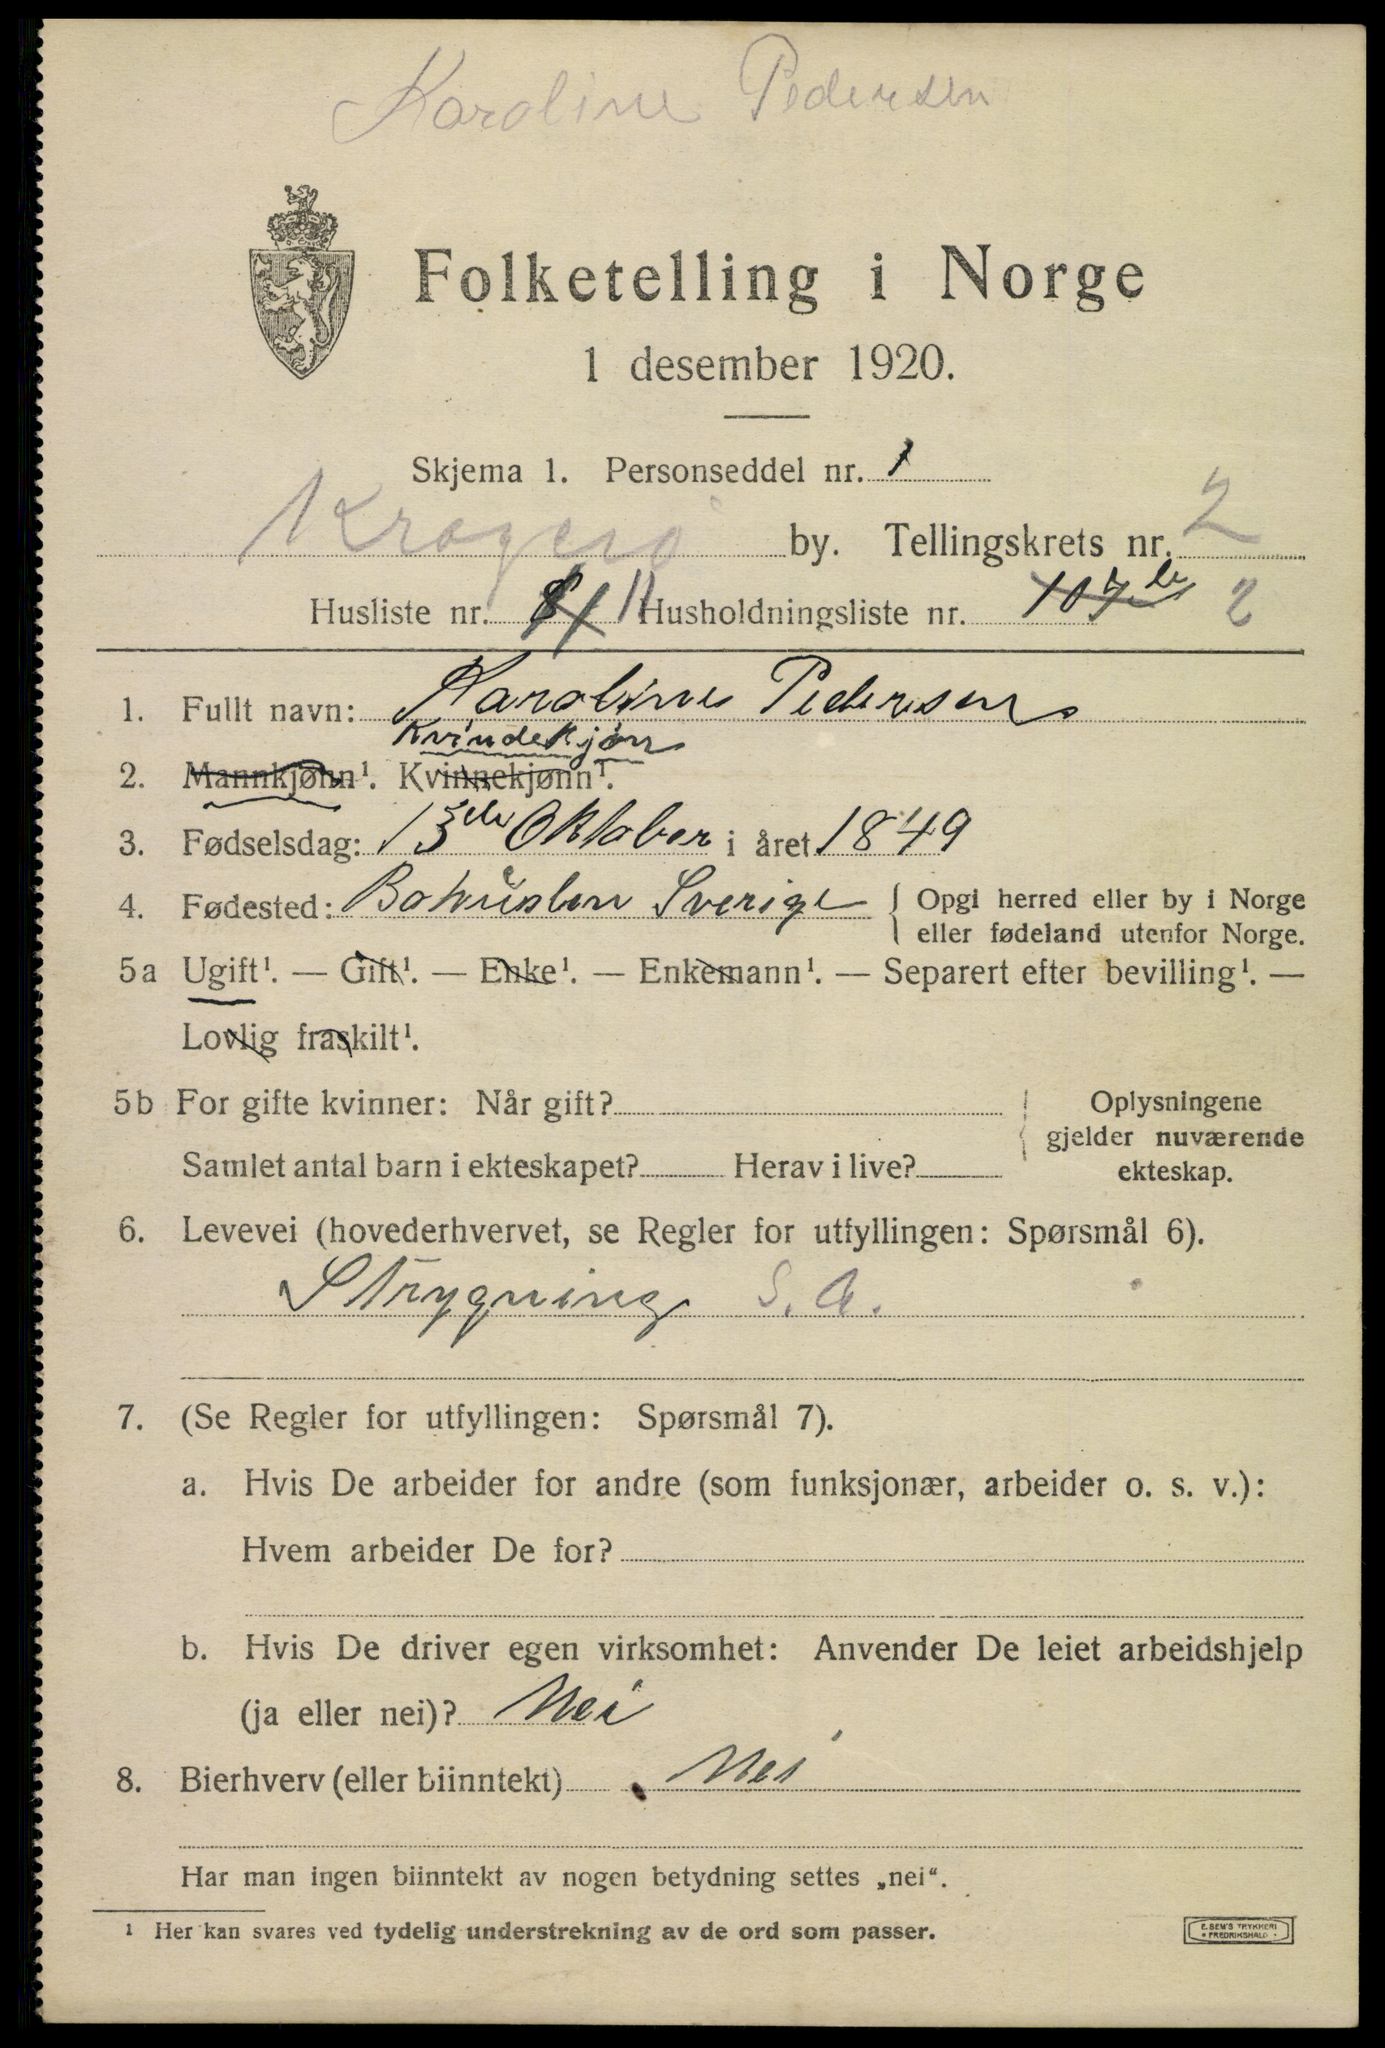 Karoline Pedersen
Folketelling i Norge
1 desember 1920.
Skjema 1. Personseddel nr. 1
Kragerø by. Tellingskrets nr. 2
Husliste nr. 11 Husholdningsliste nr. 107 2
1. Fullt navn: Karoline Pedersen
Kvindekjøn
2. Mannkjønn¹. Kvinnekjønn¹.
3. Fødselsdag: 13de Oktober i året 1849
4. Fødested: Bohuslen Sverige { Opgi herred eller by i Norge
eller fødeland utenfor Norge.
5a Ugift¹. — Gift¹. — Enke¹. — Enkemann¹. — Separert efter bevilling¹. —
Lovlig fraskilt¹.
5b For gifte kvinner: Når gift? Oplysningene
gjelder nuværende
Samlet antal barn i ekteskapet? Herav i live? ekteskap.
6. Levevei (hovederhvervet, se Regler for utfyllingen: Spørsmål 6).
Strygning S. A.
7. (Se Regler for utfyllingen: Spørsmål 7).
a. Hvis De arbeider for andre (som funksjonær, arbeider o. s. v.):
Hvem arbeider De for?
b. Hvis De driver egen virksomhet: Anvender De leiet arbeidshjelp
(ja eller nei)? Nei
8. Bierhverv (eller biinntekt) Nei
Har man ingen biinntekt av nogen betydning settes „nei“.
¹ Her kan svares ved tydelig understrekning av de ord som passer.
E. SEM'S TRYKKERI
FREDRIKSHALD